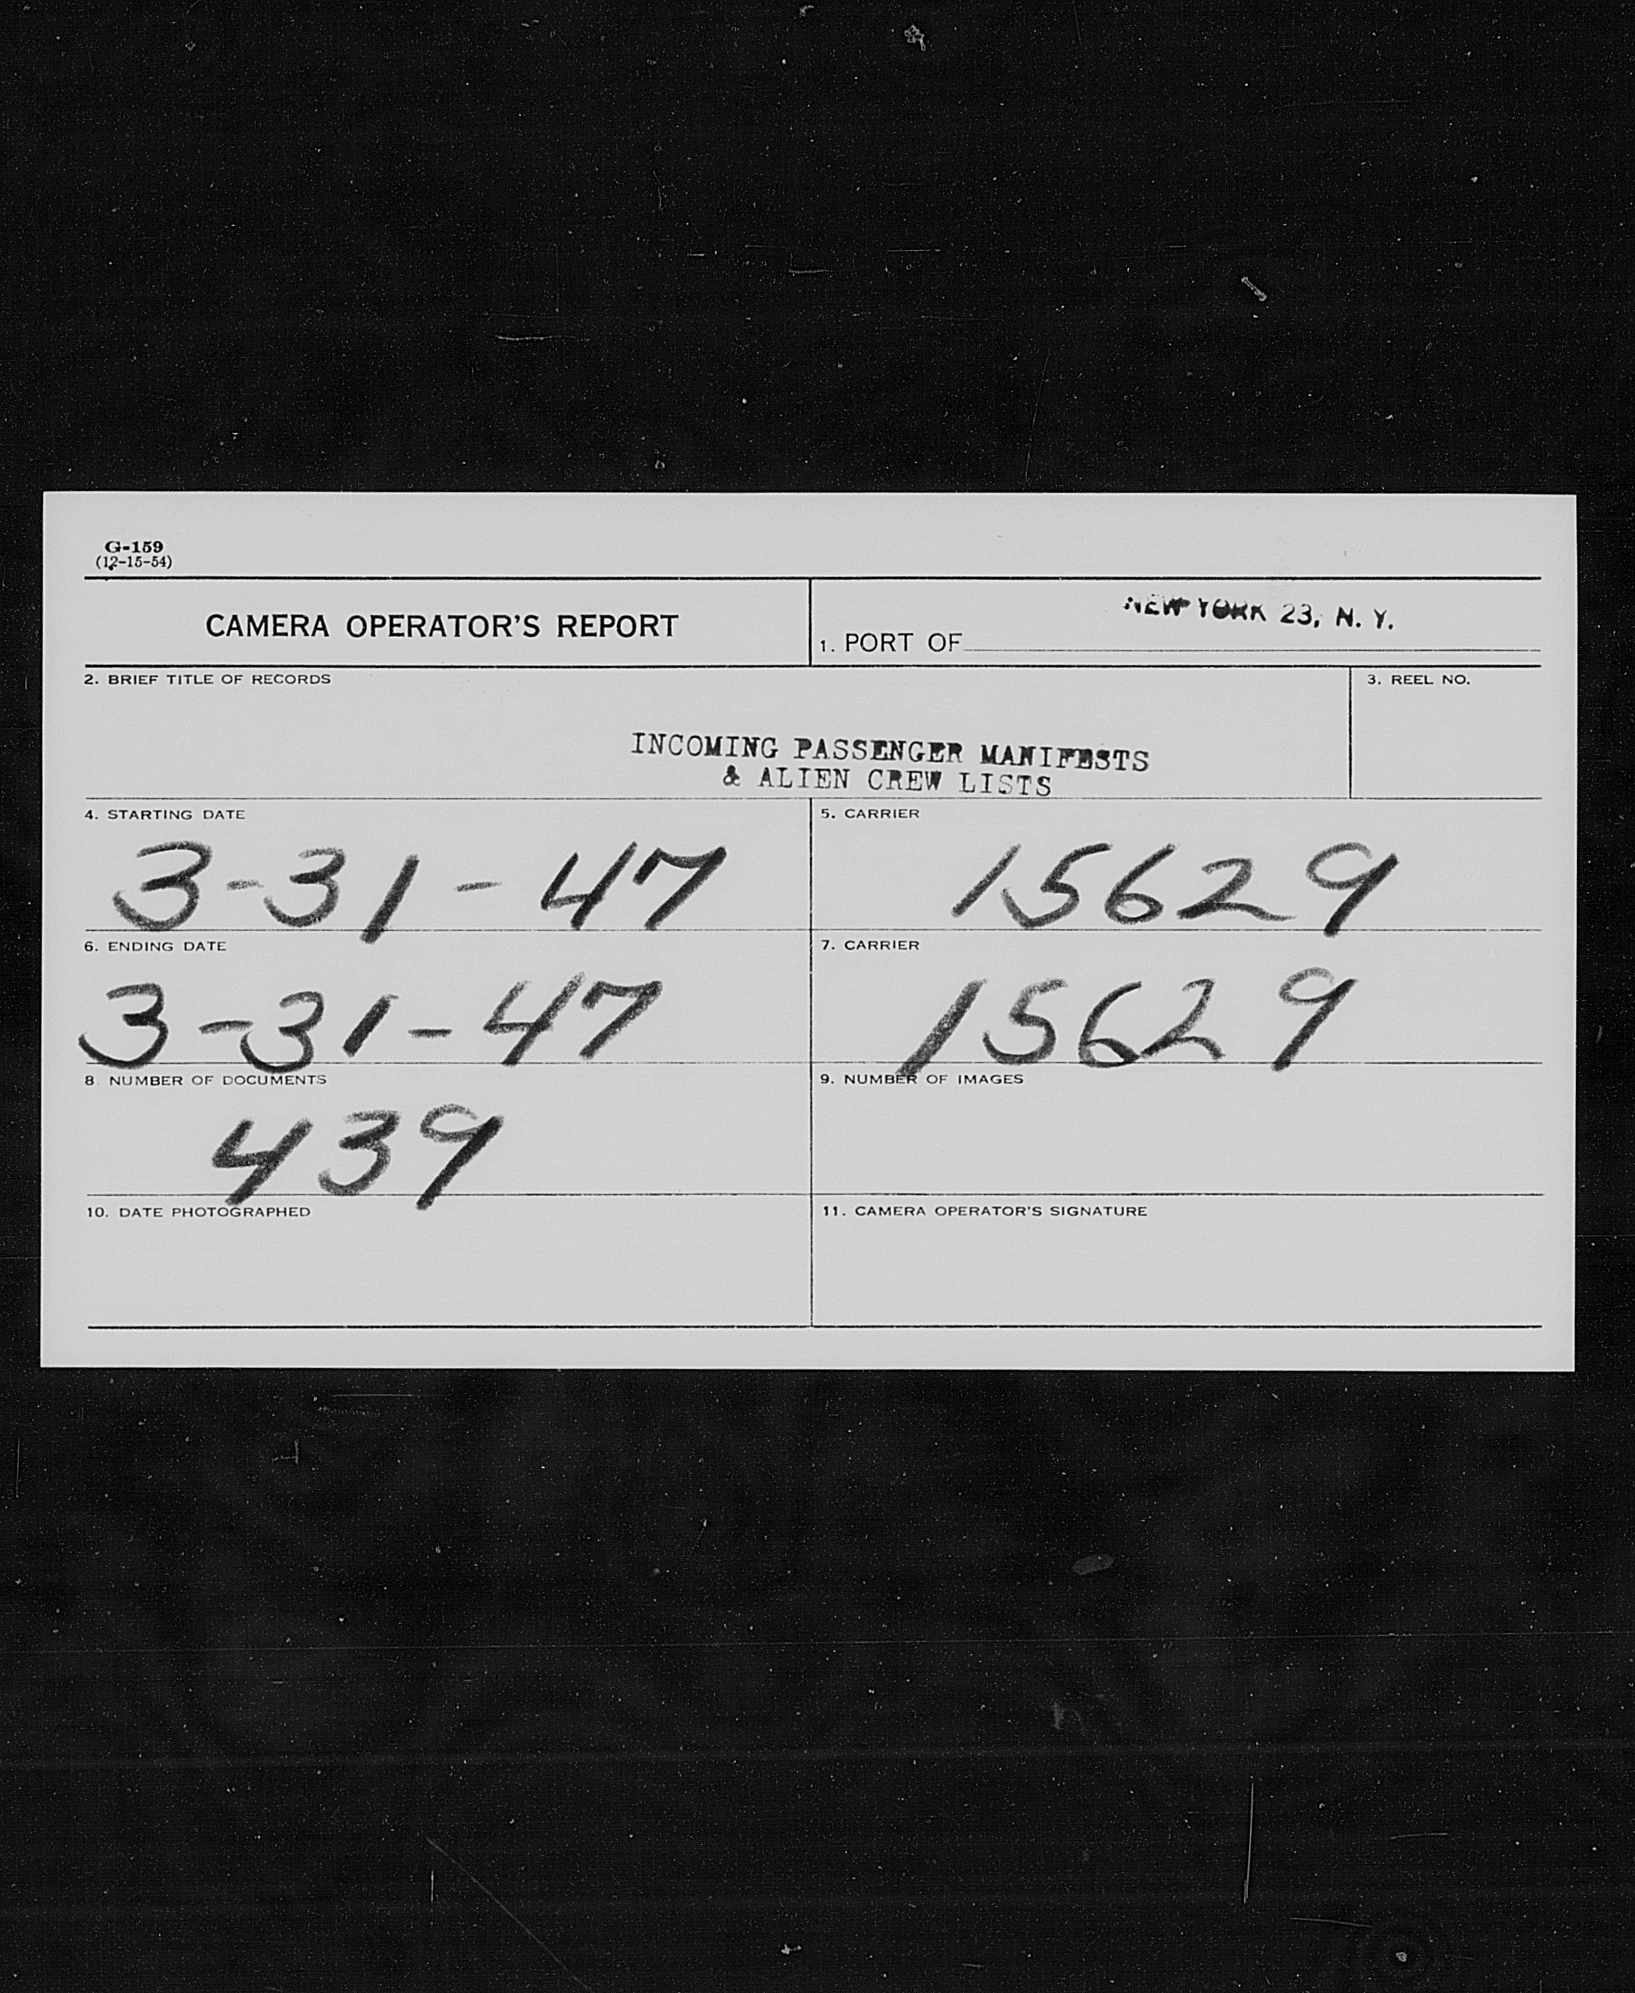 G-159
(12-15-54)
CAMERA OPERATOR'S REPORT
1. PORT OF NEW YORK 23, N. Y.
2. BRIEF TITLE OF RECORDS
3. REEL NO.
INCOMING PASSENGER MANIFESTS
& ALIEN CREW LISTS
4. STARTING DATE
5. CARRIER
3-31-47
15629
6. ENDING DATE
7. CARRIER
3-31-47
15629
8. NUMBER OF DOCUMENTS
9. NUMBER OF IMAGES
439
10. DATE PHOTOGRAPHED
11. CAMERA OPERATOR'S SIGNATURE